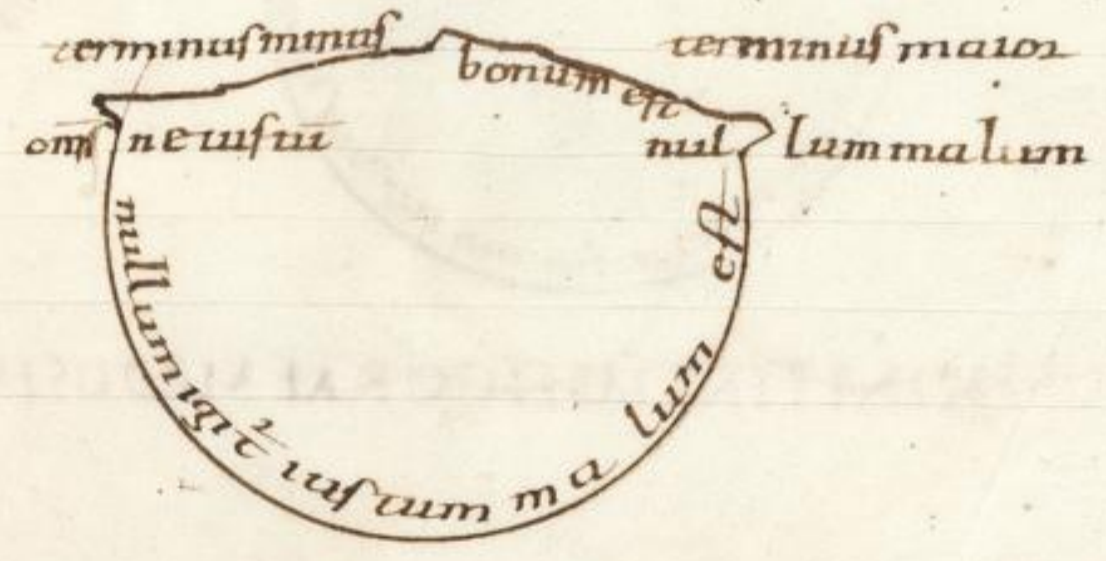 terminus minus
terminus maior
bonum est
om̄ ne iustū
nul lum malum
nullum igit̄ iustum malum est